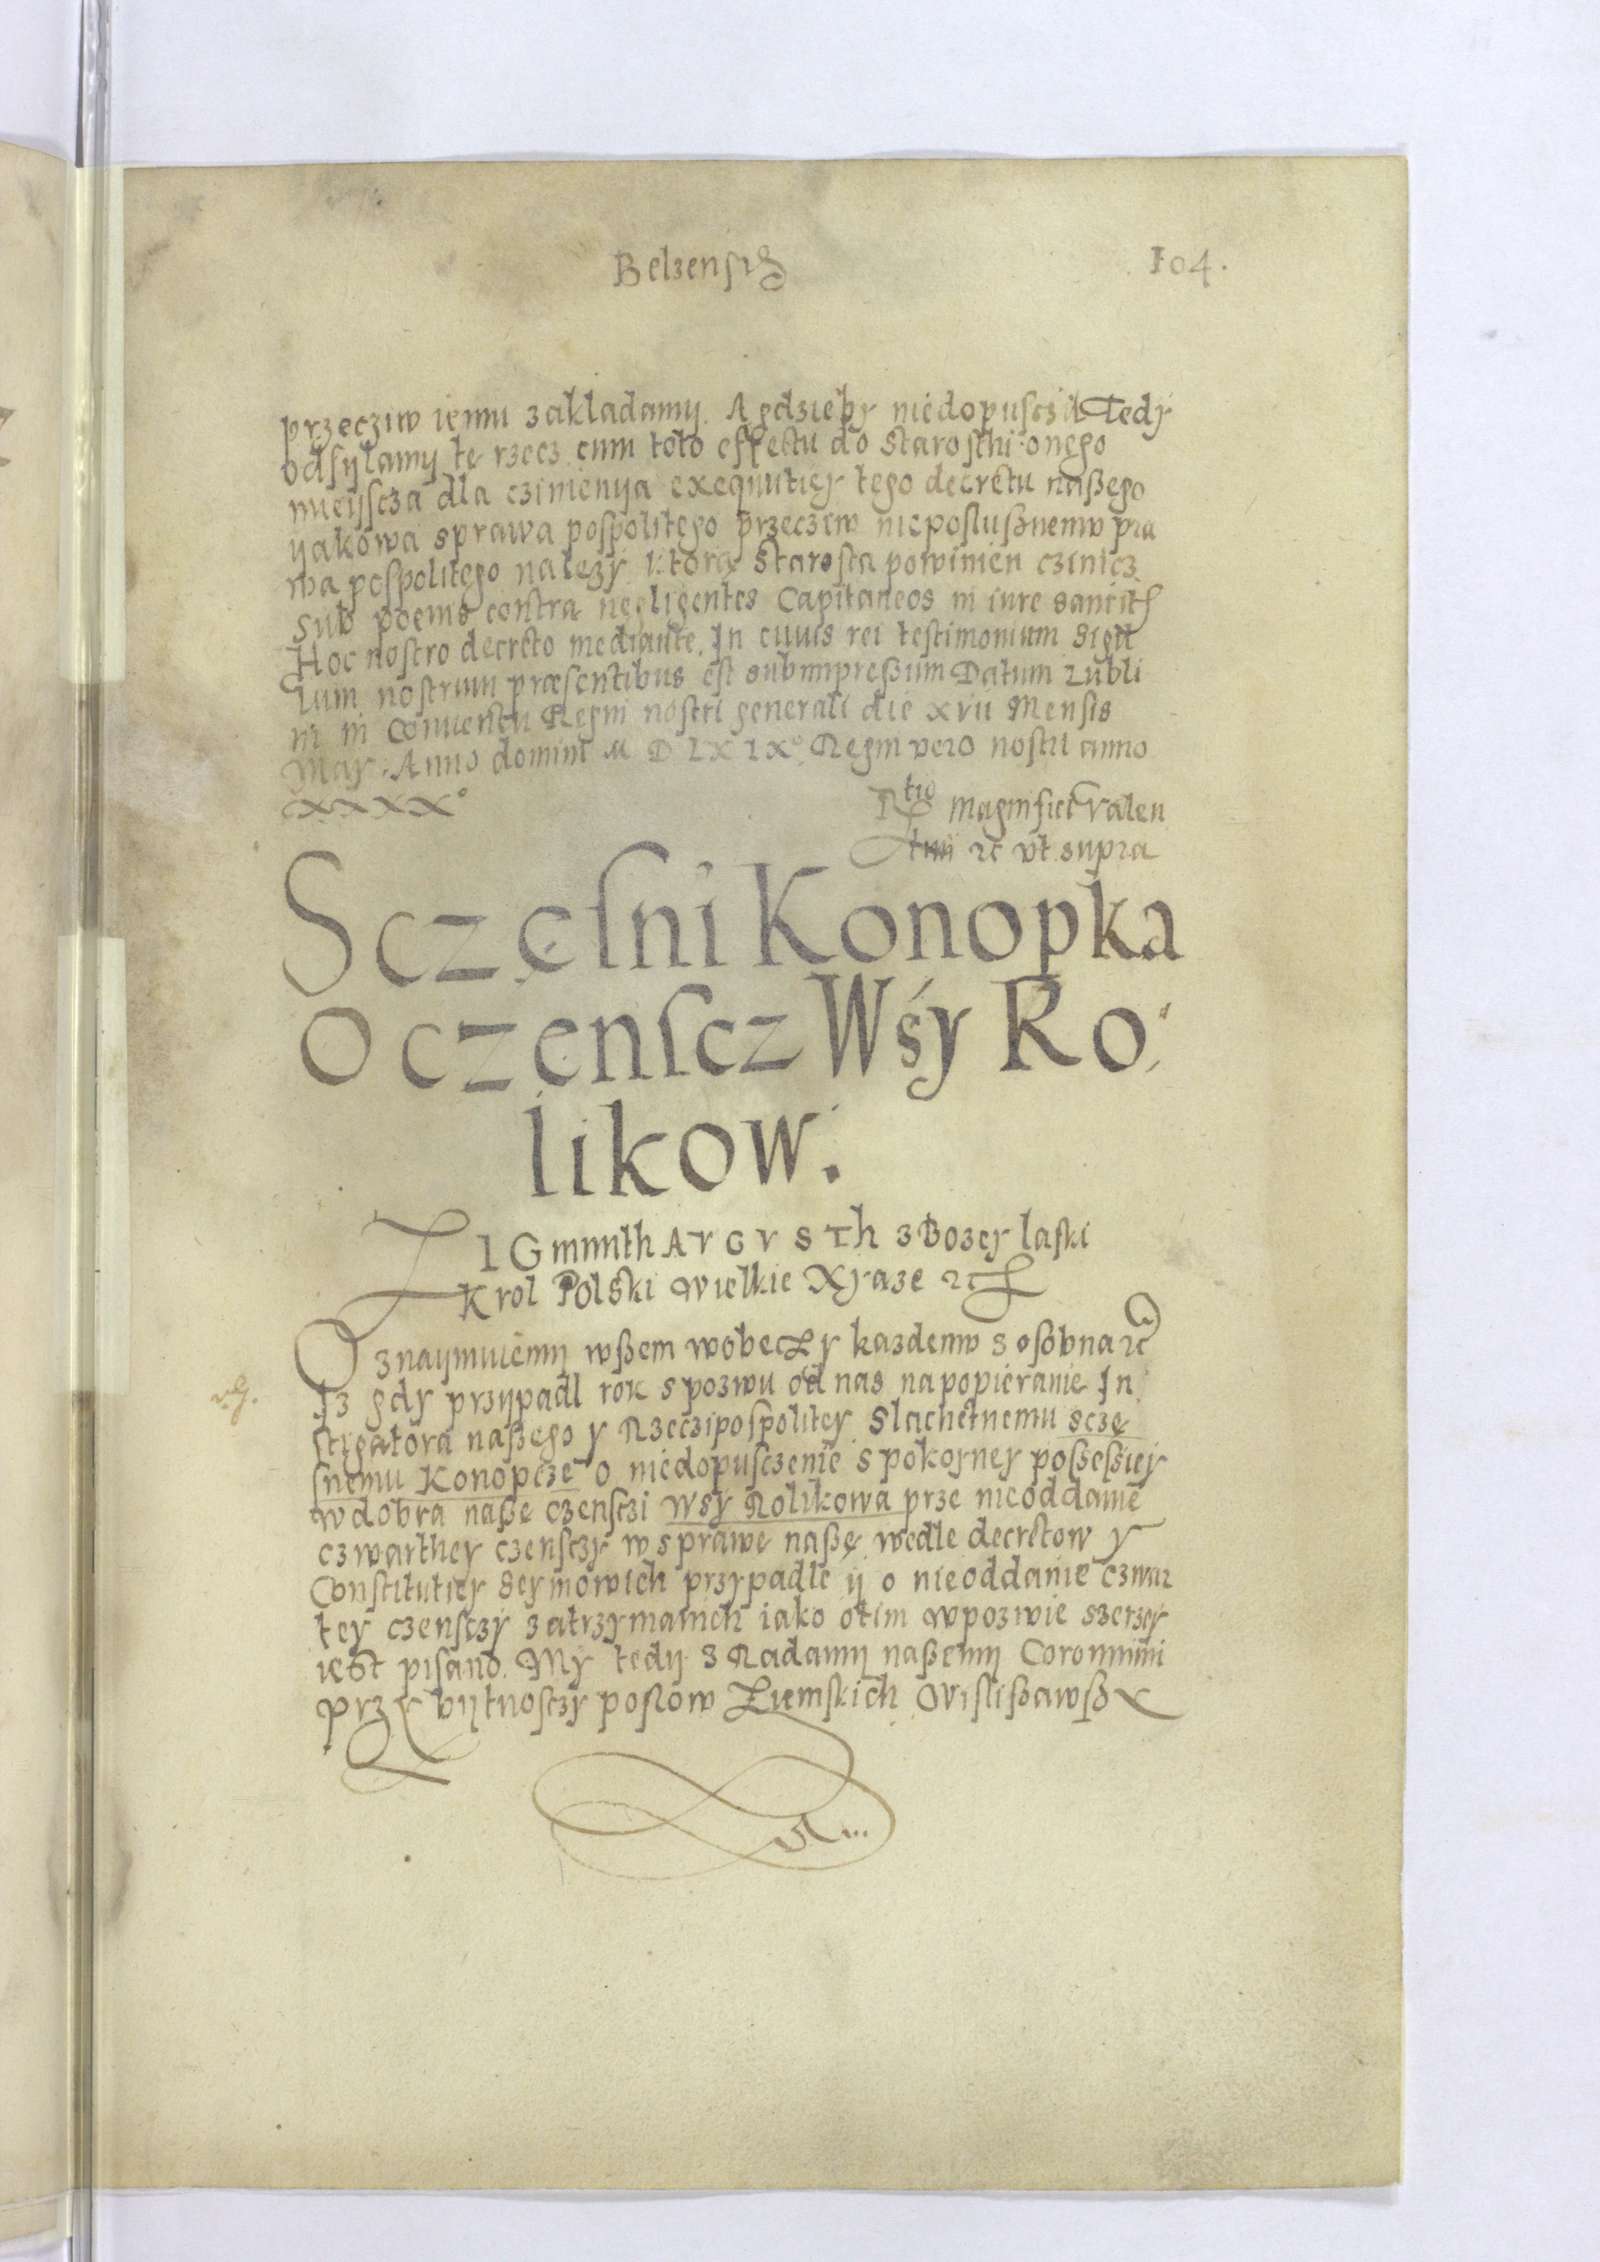 Belzensis
104.
przecziw iemu zakladamy. A gdzieby niedopusczil Tedy
odsylamy tę rzecz cum toto effectu do starosthi onego
mieyscza dla czinienya exequutiey tego decretu naßego
yakowa sprawa pospolitego przecziw nieposlusznemw pra
wa pospolitego nalezy ktorą Starosta powinien czinicz
sub poenis contra negligentes Capitaneos in iure sancitis
Hoc nostro decreto mediante. In cuius rei testimonium Sigil
lum nostrum præsentibus est subimpreßum Datum Lubli
ni in Conuentu Regni nostri generali die xvii Mensis
May. Anno domini M D L X I X° Regni vero nostri anno
XXXX°
Rtio Magnifici Valen
tini etc vt supra
Sczęsni Konopka
o czenscz Wśy Ro
likow.
ZIGmunth AVGVSTh z Bozey laski
Krol Polski Wielkie Xyaze etc
Oznaymuiemy wßem wobecz y kazdemw z osobna etc
Iz gdy przypadl rok s pozwu od nas na popieranie In
stigatora naßego y Rzeczipospolitey Slachetnemu sczę
snemu Konopcze o niedopusczenie s pokorney poßeßiey
w dobra naße czensczi Wsy Rolikowa prze nieoddanie
czwarthey czensczy w sprawe naßę wedle decretow y
Constitutiey Seymowich przypadle y o nieoddanie czwar
tey czensczy zatrzymanich iako o tim w pozwie szerzey
iest pisano. My tedy z Radamy naßemy Coronnimi
przy bytnosczy poslow Ziemskich Wislißawßy